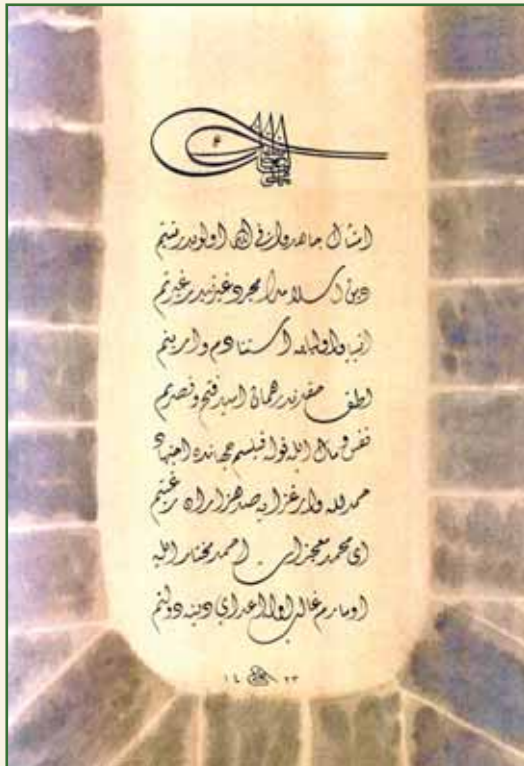 امتثال جاهدوا في الله اولوبدر نيتم
دين اسلامك مجرد غيرتيدر غيرتم
انبيا و اوليايه استنادم وار بنم
لطف حقدندر همان اميد فتح و نصرتم
نفس و مال ايله نوله قيلسم جهانده اجتهاد
حمد لله وار غزايه صد هزاران رغبتم
اى محمد معجزات احمد مختار ايله
اومارم غالب اولا اعداي دينه دولتم
١٤ ٢٣